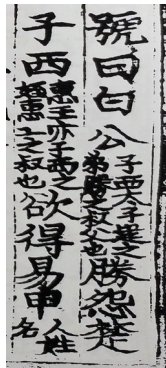 號曰白公子西太子建之弟勝之叔父也勝怨楚
子西惠王亦子西之惠王之叔也欲得易甲人姓名